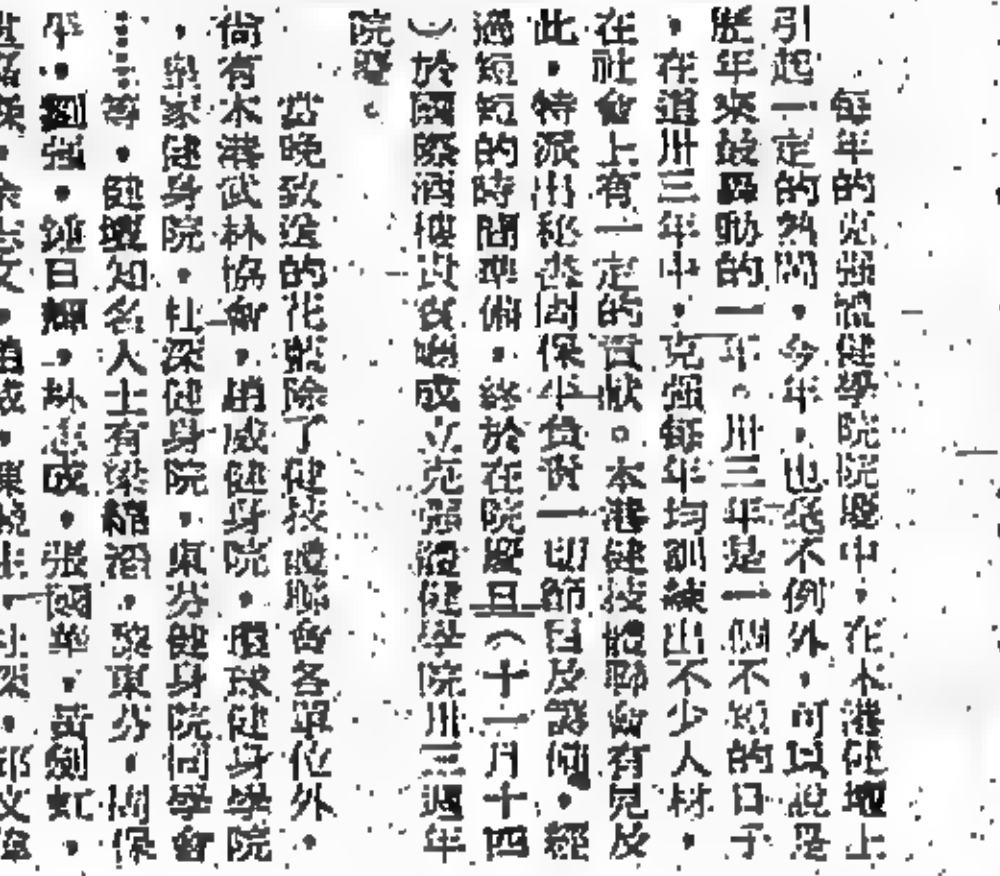 每年的克強體健學院院慶中,在本港健壇上
引起一定的熱鬧,今年,也毫不例外,可以說是
歷年來最轟動的一年。卅三年是一個不短的日子
,在道卅三年中,克強每年均訓練出不少人材,
在社會上有一定的貢獻。本港健技體聯會有見及
此,特派出秘書周保牛負責一切節目及
過短短的時間準備,終於在院慶日(十一月十四
)於國際酒樓設宴 成立克強體健學院卅三週年
院慶。
當晚致送的花籃除了健技體聯會各單位外,
尚有本港武林協會,趙威健身院,環球健身學院
,皇家健身院,杜深健身院,東芬健身院同學會
……等,健壇知名人士有梁 ,黎東芬,周保
牛,劉強,鍾日輝,林志成,張國華,黃劍虹,